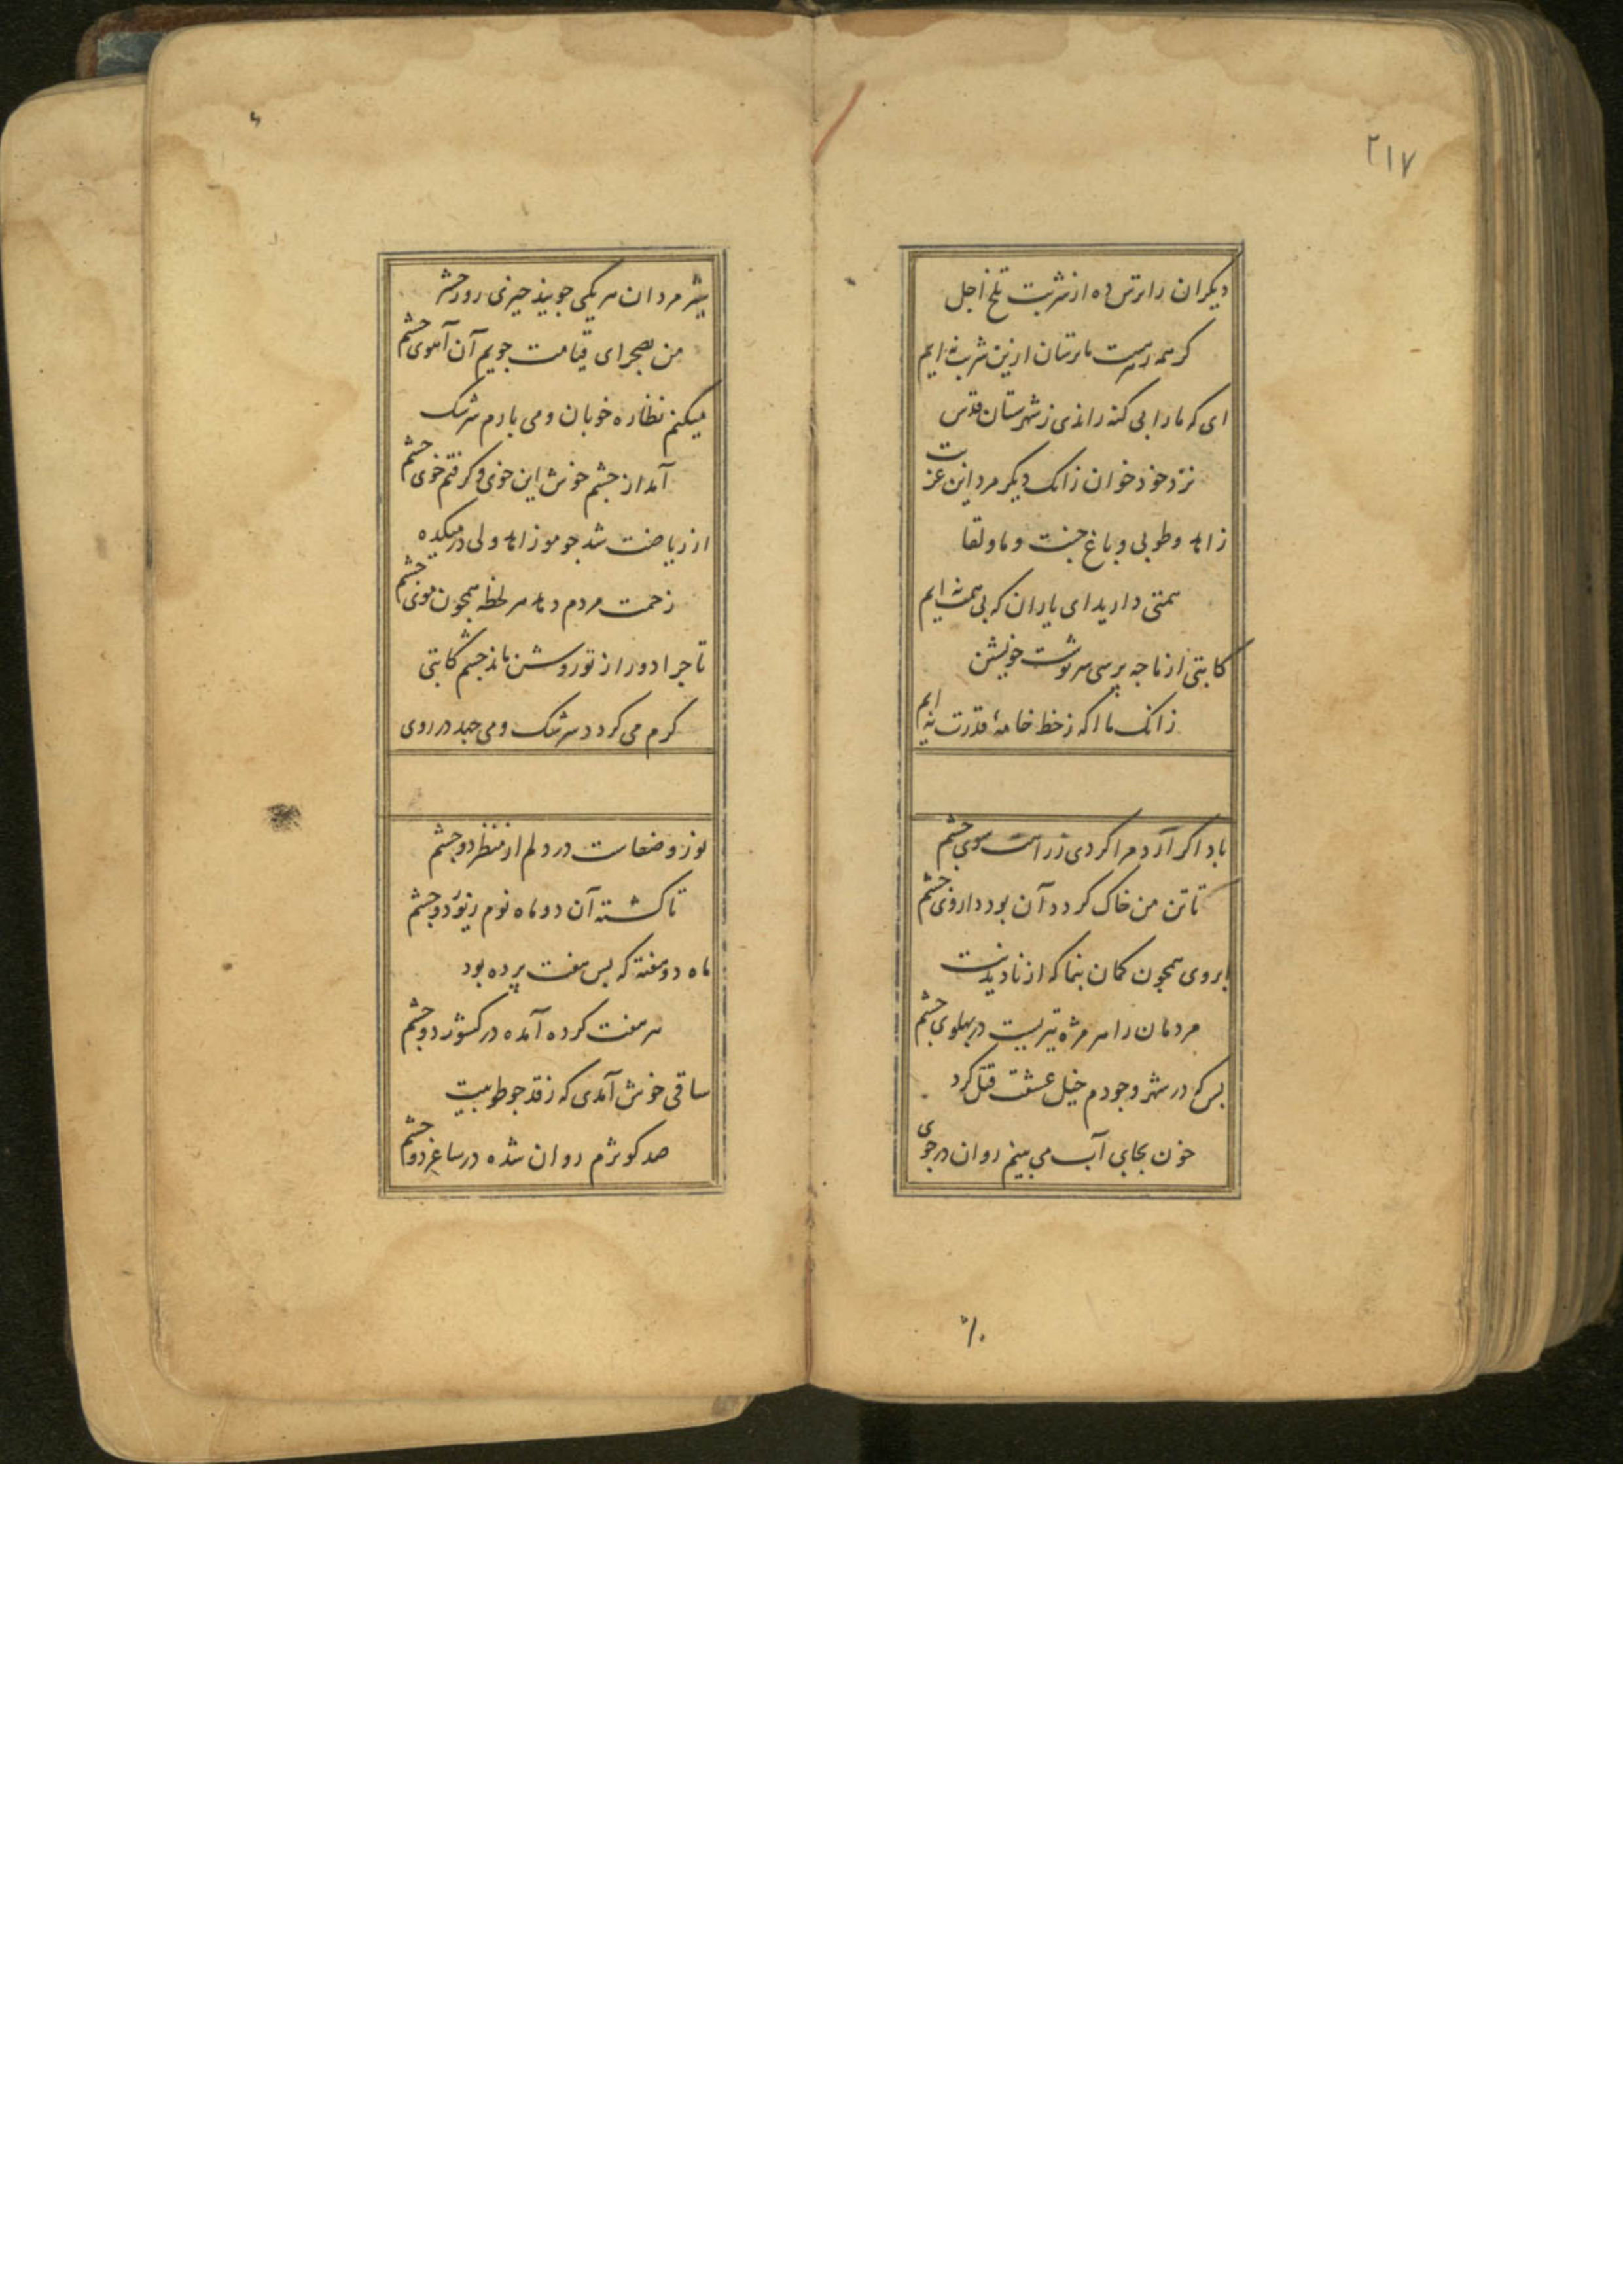 ۲۱۷
دیکران را ترس ده از شربت تلخ اجل
کر همه زهرست ما ترسان ازین شربت نه ایم
ای که ما را بی کنه راندی ز شهرستان قدس
نزد خود خوان زانک دیکر مرد این عزبت
زاهد و طوبی و باغ جنت و ما و لقا
همتی دارید ای یاران که بی همت نه ایم
کاتبی از ما چه پرسی سرنوشت خویشتن
زانک ما اکه ز خط خامهٔ قدرت نه ایم
باد اکر آرد مرا کردی ز راهت سوی چشم
تا تن من خاک کردد آن بود داروی چشم
ابروی همچون کمان بنما که از نادیدنت
مردمان را هر مژه تیریست در پهلوی چشم
بس که در شهر وجودم خیل عشقت قتل کرد
خون بجای آب می بینم روان در جوی
پیش مردان هر یکی جویند چیزی روز حشر
من بصحرای قیامت جویم آن آهوی چشم
میکنم نظاره خوبان و می بارم سرشک
آمد از چشم خوش این خوی و کرفتم خوی چشم
از ریاضت شد چو مو زاهد ولی در میکده
زحمت مردم دهد هر لحظه همچون موی چشم
تا چرا دور از تو روشن ماند چشم کاتبی
کرم می کردد سرشک و می جهد در روی
نور و ضعاست در دلم از منظر دو چشم
تا کشته آن دو ماه نوم زیور دو چشم
ماه دو هفته که پس هفت پرده بود
هر هفت کرده آمده در کشور دو چشم
ساقی خوش آمدی که ز قد چو طوبیت
صد کوثرم روان شده در ساغر دو چشم